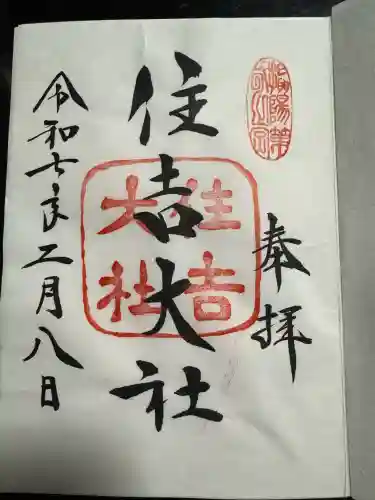 奉拝
住吉大社
住吉
大社
令和七年二月八日